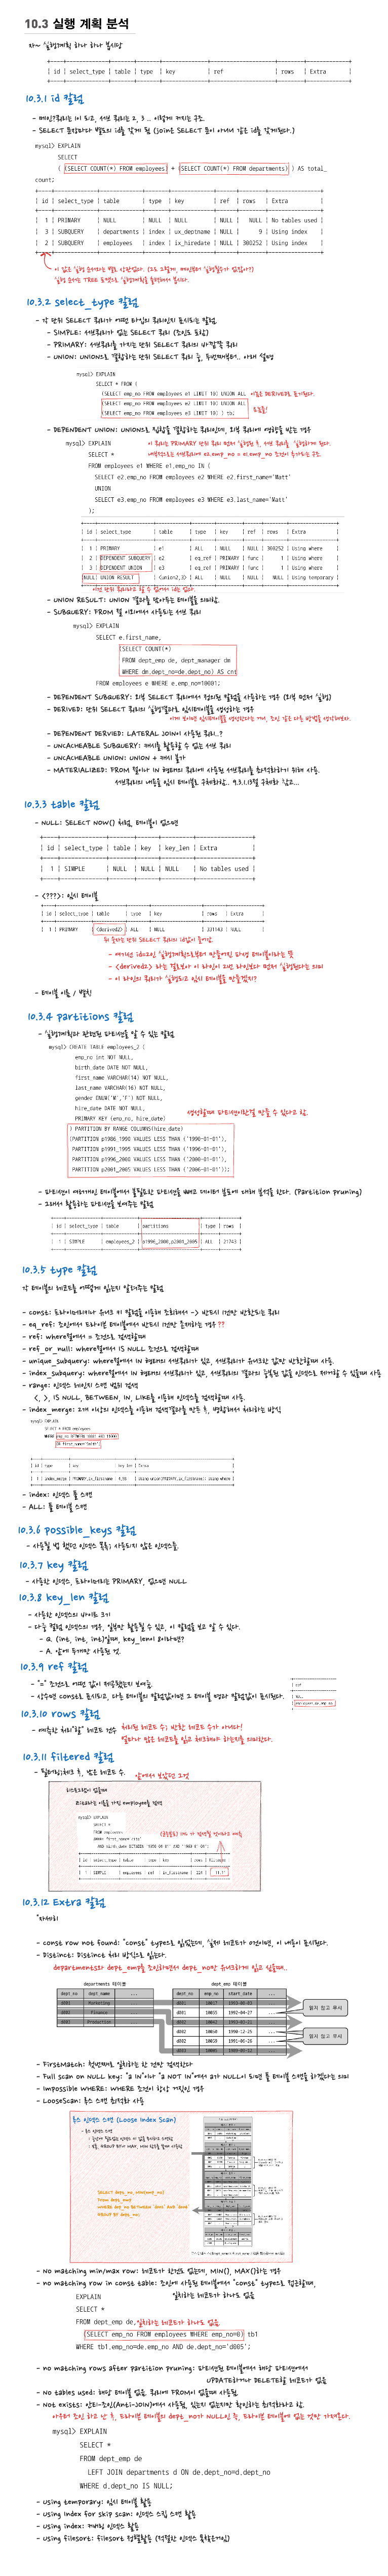 10.3 실행 계획 분석
자~ 실행계획 하나 하나 봅시당
| id | select_type | table | type | key | ref | rows | Extra |
10.3.1 id 칼럼
- SELECT 문장마다 별도의 id를 갖게 됨 (Join은 SELECT 문이 아니니 같은 id를 갖게된다.)
mysql> EXPLAIN
SELECT
( (SELECT COUNT(*) FROM employees) + (SELECT COUNT(*) FROM departments) ) AS total_
count;
| id | select_type | table | type | key | ref | rows | Extra |
| 1 | PRIMARY | NULL | NULL | NULL | NULL | NULL | No tables used |
| 3 | SUBQUERY | departments | index | ux_deptname | NULL | 9 | Using index |
| 2 | SUBQUERY | employees | index | ix_hiredate | NULL | 300252 | Using index |
실행 순서는 TREE 포맷으로 실행계획을 출력해서 봅시다.
10.3.2 select_type 칼럼
- 각 단위 SELECT 쿼리가 어떤 타입의 쿼리인지 표시되는 칼럼.
- SIMPLE: 서브쿼리가 없는 SELECT 쿼리 (조인도 포함)
- PRIMARY: 서브쿼리를 가지는 단위 SELECT 쿼리의 바깥쪽 쿼리
- UNION: UNION으로 결합하는 단위 SELECT 쿼리 중, 두번째부터.. 아래 설명
mysql> EXPLAIN
SELECT * FROM (
(SELECT emp_no FROM employees e1 LIMIT 10) UNION ALL 이놈은 DERIVED로 표기된다.
(SELECT emp_no FROM employees e2 LIMIT 10) UNION ALL
(SELECT emp_no FROM employees e3 LIMIT 10) ) tb; 요놈들!
- DEPENDENT UNION: UNION으로 집합을 결합하는 쿼리인데, 외부 쿼리에 영향을 받는 경우
mysql> EXPLAIN 이 쿼리는 PRIMARY 단위 쿼리 먼저 실행된 후, 서브 쿼리를 실행하게 된다.
SELECT * 내부적으로는 서브쿼리에 e2.emp_no = e1.emp_no 조건이 추가되는 구조.
FROM employees e1 WHERE e1.emp_no IN (
SELECT e2.emp_no FROM employees e2 WHERE e2.first_name='Matt'
UNION
SELECT e3.emp_no FROM employees e3 WHERE e3.last_name='Matt'
);
| id | select_type | table | type | key | ref | rows | Extra |
| 1 | PRIMARY | e1 | ALL | NULL | NULL | 300252 | Using where |
| 2 | DEPENDENT SUBQUERY | e2 | eq_ref | PRIMARY | func | 1 | Using where |
| 3 | DEPENDENT UNION | e3 | eq_ref | PRIMARY | func | 1 | Using where |
|NULL| UNION RESULT | <union2,3> | ALL | NULL | NULL | NULL | Using temporary |
- UNION RESULT: UNION 결과를 담아두는 테이블을 의미함.
- SUBQUERY: FROM 절 이외에서 사용되는 서브 쿼리
mysql> EXPLAIN
SELECT e.first_name,
(SELECT COUNT(*)
FROM dept_emp de, dept_manager dm
WHERE dm.dept_no=de.dept_no) AS cnt
FROM employees e WHERE e.emp_no=10001;
- DEPENDENT SUBQUERY: 외부 SELECT 쿼리에서 정의된 칼럼을 사용하는 경우 (외부 먼저 실행)
- DERIVED: 단위 SELECT 쿼리의 실행결과로 임시테이블을 생성하는 경우
- DEPENDENT DERVIED: LATERAL JOIN이 사용된 쿼리..?
- UNCACHEABLE SUBQUERY: 캐시를 활용할 수 없는 서브 쿼리
- UNCACHEABLE UNION: UNION + 캐시 불가
- MATERIALIZED: FROM 절이나 IN 형태의 쿼리에 사용된 서브쿼리를 최적화하기 위해 사용.
서브쿼리의 내용을 임시 테이블로 구체화함.. 9.3.1.13절 구체화 참고...
10.3.3 table 칼럼
- NULL: SELECT NOW() 처럼, 테이블이 없으면
| id | select_type | table | key | key_len | Extra |
| 1 | SIMPLE | NULL | NULL | NULL | No tables used |
- <???>: 임시 테이블
| id | select_type | table | type | key | rows | Extra |
| 1 | PRIMARY | <derived2> | ALL | NULL | 331143 | NULL |
뒤 숫자는 단위 SELECT 쿼리의 id값이 들어감.
- 여기선 id=2인 실행계획으로부터 만들어진 파생 테이블이라는 뜻
- <derived2> 라는 걸로보아 이 라인이 2번 라인보다 먼저 실행된다는 의미
- 이 라인의 쿼리가 실행되고 임시 테이블을 만들겠지?
- 테이블 이름 / 별칭
10.3.4 partitions 칼럼
- 실행계획과 관련된 파티션을 알 수 있는 칼럼
mysql> CREATE TABLE employees_2 (
emp_no int NOT NULL,
birth_date DATE NOT NULL,
first_name VARCHAR(14) NOT NULL,
last_name VARCHAR(16) NOT NULL,
gender ENUM('M','F') NOT NULL,
hire_date DATE NOT NULL,
PRIMARY KEY (emp_no, hire_date)
생성할때 파티션이란걸 만들 수 있다고 함.
) PARTITION BY RANGE COLUMNS(hire_date)
(PARTITION p1986_1990 VALUES LESS THAN ('1990-01-01'),
PARTITION p1991_1995 VALUES LESS THAN ('1996-01-01'),
PARTITION p1996_2000 VALUES LESS THAN ('2000-01-01'),
PARTITION p2001_2005 VALUES LESS THAN ('2006-01-01'));
- 파티션이 여러개인 테이블에서 불필요한 파티션을 빼고 데이터 분포에 대해 분석을 한다. (Partition pruning)
- 그래서 활용하는 파티션을 보여주는 칼럼
| id | select_type | table | partitions | type | rows |
| 1 | SIMPLE | employees_2 | p1996_2000,p2001_2005 | ALL | 21743 |
10.3.5 type 칼럼
각 테이블의 레코드를 어떻게 읽는지 알려주는 칼럼
- const: 프라이머리키나 유니크 키 칼럼을 이용해 조회해서 -> 반드시 1건만 반환되는 쿼리
- eq_ref: 조인에서 드라이븐 테이블에서 반드시 1건만 존재하는 경우??
- ref: where절에서 = 조건으로 검색할때
- ref_or_null: where절에서 IS NULL 조건으로 검색할때
- unique_subquery: where절에서 IN 형태의 서브쿼리가 있고, 서브쿼리가 유니크한 값만 반환할때 사용.
- index_subquery: where절에서 IN 형태의 서브쿼리가 있고, 서브쿼리의 결과의 중복된 값을 인덱스로 제거할 수 있을때 사용
- range: 인덱스 레인지 스캔 범위 검색
<, >, IS NULL, BETWEEN, IN, LIKE를 이용해 인덱스를 검색할때 사용.
- index_merge: 2개 이상의 인덱스를 이용해 검색결과를 만든 후, 병합해서 처리하는 방식
mysql> EXPLAIN
SELECT * FROM employees
WHERE emp_no BETWEEN 10001 AND 11000
OR first_name='Smith';
| id | type | key | key_len | Extra |
| 1 | index_merge | PRIMARY,ix_firstname | 4,58 | Using union(PRIMARY,ix_firstname); Using where |
- index: 인덱스 풀 스캔
- ALL: 풀 테이블 스캔
10.3.6 possible_keys 칼럼
- 사용될 법 했던 인덱스 목록; 사용되지 않은 인덱스들.
10.3.7 key 칼럼
- 사용한 인덱스, 프라이머리는 PRIMARY, 없으면 NULL
10.3.8 key_len 칼럼
- 사용한 인덱스의 바이트 크기
- 다중 칼럼 인덱스의 경우, 일부만 활용될 수 있고, 이 칼럼을 보고 알 수 있다.
- Q. (int, int, int)일때, key_len이 8이라면?
- A. 앞에 두개만 사용된 것.
10.3.9 ref 칼럼
- "=" 조건으로 어떤 값이 제공됐는지 보여줌.
- 상수면 const로 표시되고, 다른 테이블의 칼럼값이면 그 테이블 명과 칼럼값이 표시된다.
10.3.10 rows 칼럼
- 예측한 처리"할" 레코드 건수 처리된 레코드 수; 반환 레코드 수가 아니다!
얼마나 많은 레코드를 읽고 처리해야 하는지를 의미한다.
10.3.11 filtered 칼럼
- 필터링;처리 후, 남은 레코드 수. 앞에서 보았던 그것
mysql> EXPLAIN
SELECT *
FROM employees
10.3.12 Extra 칼럼
- const row not found: "const" 타입으로 읽었는데, 실제 레코드가 0건이면, 이 내용이 표시된다.
- Distinct: Distinct 처리 방식으로 읽는다.
departments와 dept_emp를 조인하면서 dept_no만 유니크하게 읽고 싶을때..
departments 테이블 dept_emp 테이블
dept_no dept_name ... dept_no emp_no start_date ...
읽지 않고 무시
읽지 않고 무시
- FirstMatch: 첫번째로 일치하는 한 건만 검색한다
- Full scan on NULL key: "a IN"이나 "a NOT IN"에서 a가 NULL이 되면 풀 테이블 스캔을 하겠다는 의미
- Impossible WHERE: WHERE 조건이 항상 거짓인 경우
- LooseScan: 루스 스캔 최적화 사용
루스 인덱스 스캔 (Loose Index Scan)
SELECT dept_no, MIN(emp_no)
FROM dept_emp
WHERE dep_no BETWEEN 'd002' AND 'd004'
GROUP BY dept_no;
- No matching min/max row: 레코드가 한건도 없는데, MIN(), MAX()하는 경우
- no matching row in const table: 조인에 사용된 테이블에서 "const" type으로 접근할때,
일치하는 레코드가 하나도 없음
EXPLAIN
SELECT *
FROM dept_emp de, 일치하는 레코드가 하나도 없음.
(SELECT emp_no FROM employees WHERE emp_no=0) tb1
WHERE tb1.emp_no=de.emp_no AND de.dept_no='d005';
- no matching rows after partition pruning: 파티션된 테이블에서 해당 파티션에서
UPDATE하거나 DELETE할 레코드가 없음
- No tables used: 해당 테이블 없음. 쿼리에 FROM이 없을때 사용됨.
- Not exists: 안티-조인(Anti-Join)에서 사용됨, 있는지 없는지만 확인하는 최적화라고 함.
아우터 조인 하고 난 후, 드라이븐 테이블의 dept_no가 NULL인 즉, 드라이븐 테이블에 없는 것만 가져온다.
mysql> EXPLAIN
SELECT *
FROM dept_emp de
LEFT JOIN departments d ON de.dept_no=d.dept_no
WHERE d.dept_no IS NULL;
- Using temporary: 임시 테이블 활용
- Using Index for skip scan: 인덱스 스킵 스캔 활용
- Using index: 커버링 인덱스 활용
- Using filesort: filesort 정렬활용 (적절한 인덱스 못찾은거임)